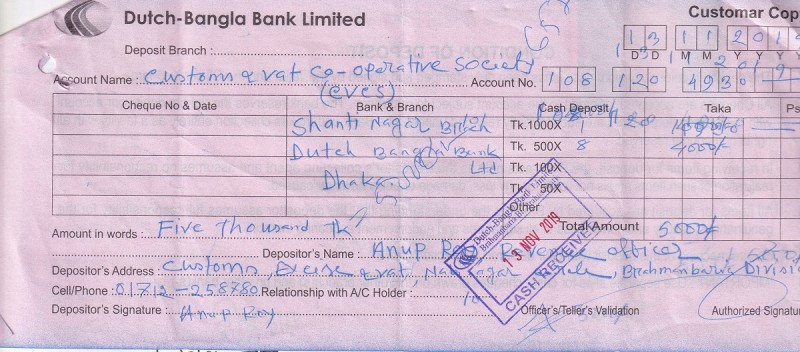 Dutch-Bangla Bank Limited
Customar Cop
Deposit Branch :
13 11 201
D D M M Y Y Y Y
Account Name : Customs & vat co-operative Society
(cves)
Account No. 108 120 4930
Cheque No & Date Bank & Branch Cash Deposit Taka Ps
Shanti Nagar Brnch Tk.1000X 1
Dutch Bangla Bank Tk. 500X 8 4000/-
Ltd Tk. 100X
Dhaka. Tk. 50X
Other
Amount in words : Five Thousand Tk Total Amount 5000/-
Depositor's Name : Anup Roy Revenue officer
Depositor's Address : Customs, Excise & vat, Brahmanbaria Division
Cell/Phone : 01712-258780 Relationship with A/C Holder :
Depositor's Signature : Anup Roy
Officer's/Teller's Validation Authorized Signatur
Dutch-Bangla Bank Limited
13 NOV 2019
CASH RECEIVED